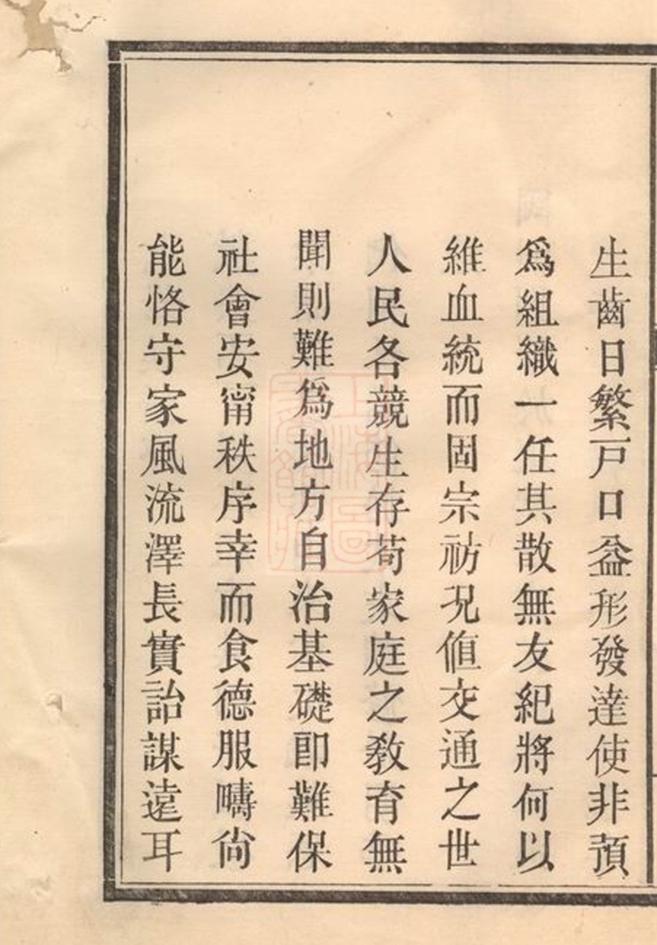 生齒日繁戸口益形發達使非預
爲組織一任其散無友紀將何以
維血統而固宗祊况值交通之世
人民各競生存苟家庭之教育無
聞則難爲地方自治基礎卽難保
社會安甯秩序幸而食德服疇尙
能恪守家風流澤長實詒謀遠耳